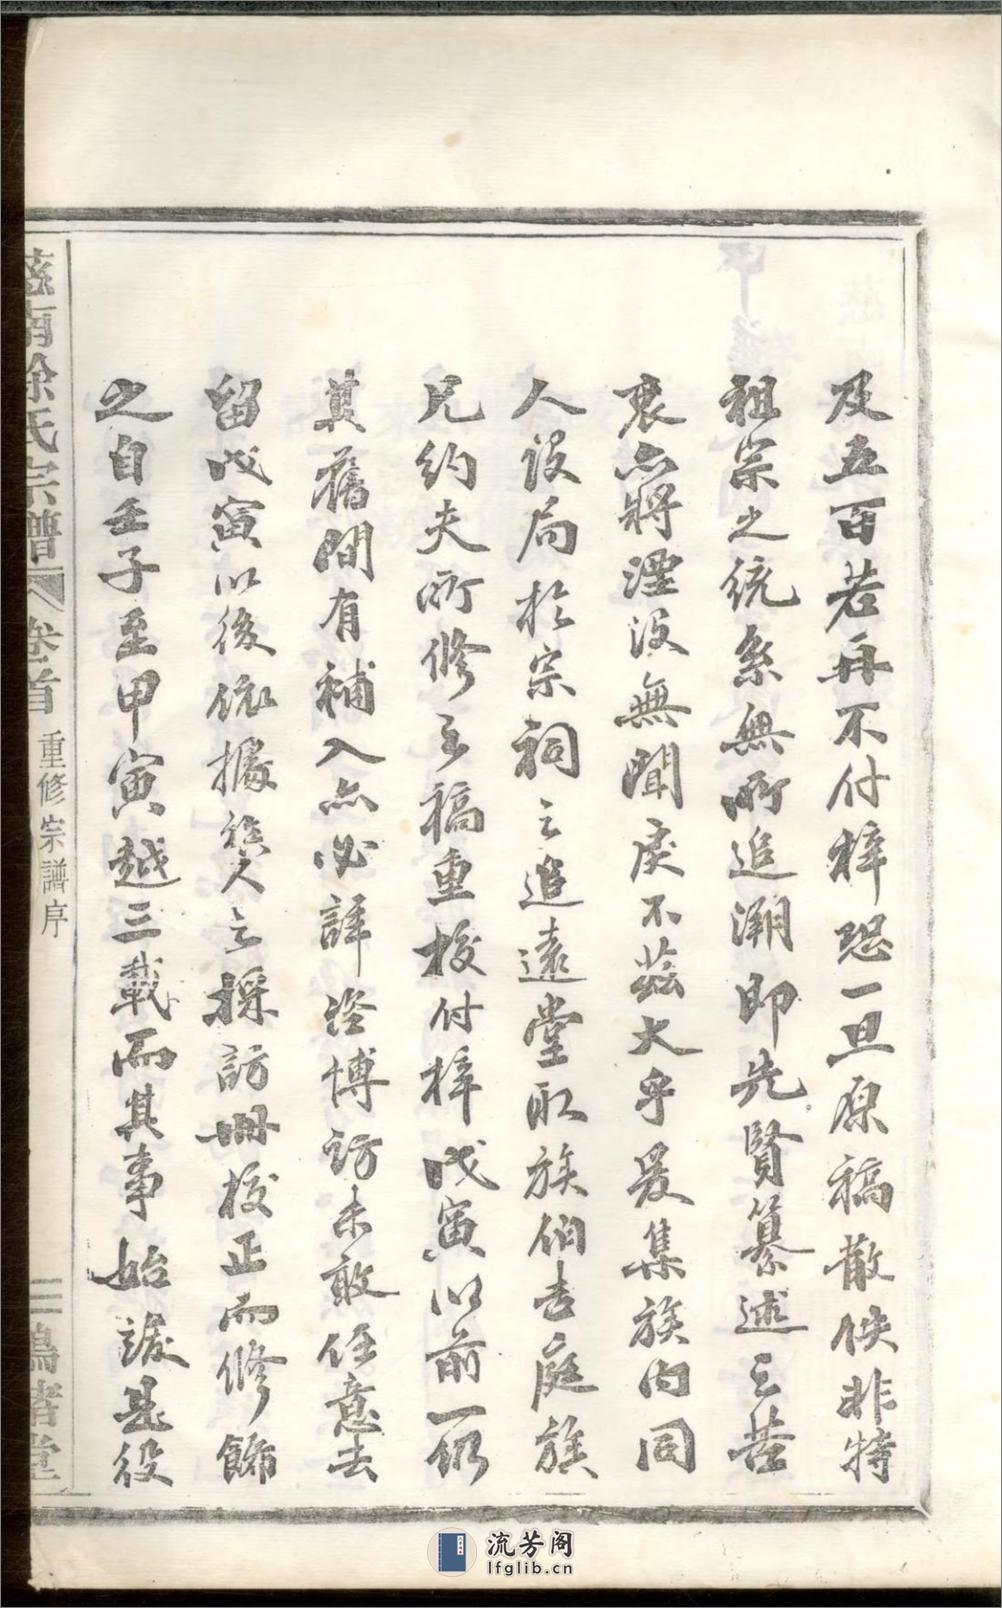 及五百若再不付梓恐一旦原稿散佚非特
祖宗之統系無所追溯即先賢纂述之苦
衷亦將湮沒無聞戾不茲大乎爰集族內同
人設局於宗祠之追遠堂取族伯杏庭族
兄約夫所修之稿重校付梓戊寅以前一仍
其舊間有補入亦必詳咨博訪未敢任意去
留戊寅以後依據族人之採訪冊校正而修飾
之自壬子至甲寅越三載而其事始竣是役
慈南徐氏宗譜 卷首 重修宗譜序 三 堂
流芳阁
lfglib.cn